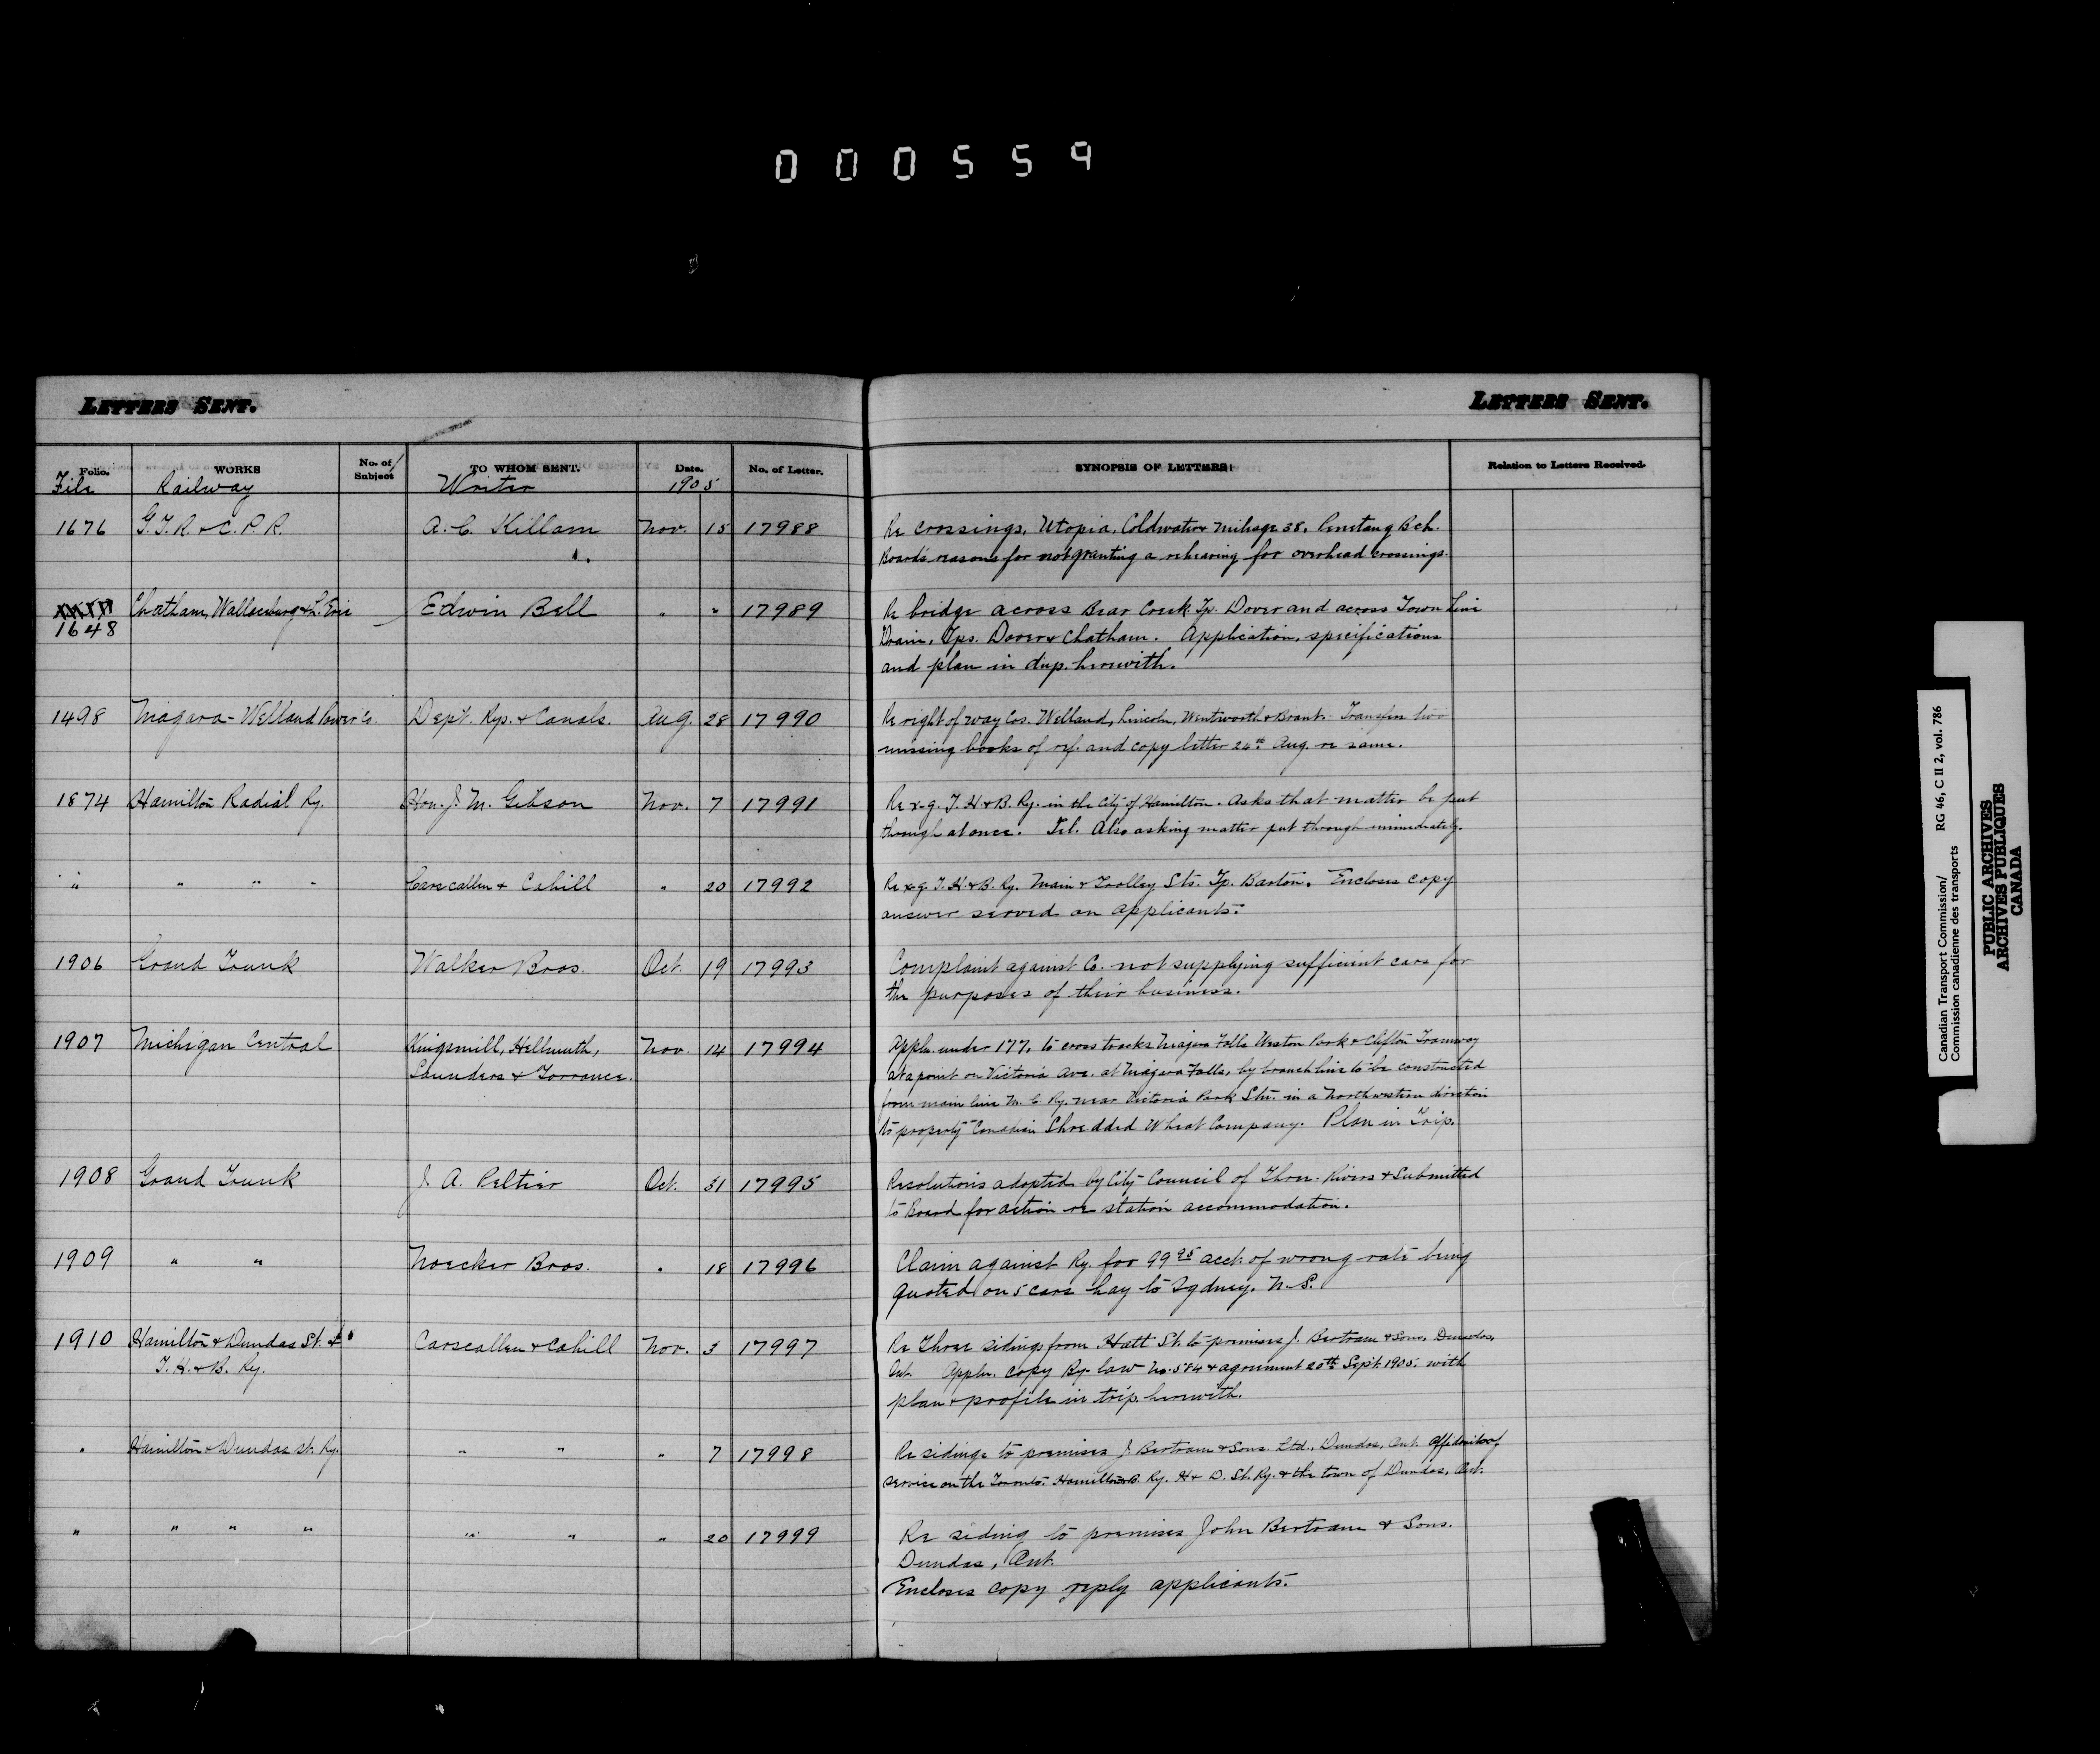 000559
LETTERS SENT.
LETTERS SENT.
Folio. WORKS No. of Subject TO WHOM SENT. Date. No. of Letter. SYNOPSIS OF LETTERS. Relation to Letters Received.
File Railway Writer 1905
1676 G.T.R. & C.P.R. A. C. Killam Nov. 15 17988 Re crossings, Utopia, Coldwater mileage 38, Penetang Bch.
Board's reasons for not granting a rehearing for overhead crossings.
1648 Chatham, Wallaceburg & L. Erie Edwin Bell " " 17989 Re bridge across Bear Creek Tp. Dover and across Town Line
Drain, Tps. Dover & Chatham. Application, specifications
and plan in dup. herewith.
1498 Niagara-Welland Power Co. Dept. Rys. & Canals. Aug. 28 17990 Re right of way Cos. Welland, Lincoln, Wentworth & Brant. Transfers two
missing books of ref. and copy letter 24th Aug. re same.
1874 Hamilton Radial Ry. Hon. J. M. Gibson Nov. 7 17991 Re x-g. T. H. & B. Ry. in the City of Hamilton. Asks that matter be put
through at once. Tel. Also asking matter put through immediately.
" " " " Carscallen & Cahill " 20 17992 Re x-g. T. H. & B. Ry. Main & Trolley Sts. Tp. Barton. Encloses copy
answer served on applicants.
1906 Grand Trunk Walker Bros. Oct. 19 17993 Complaint against Co. not supplying sufficient cars for
the purposes of their business.
1907 Michigan Central Kingsmill, Hellmuth, Nov. 14 17994 Appln. under 177, to cross tracks Niagara Falls Weston Park & Clifton Tramway
Saunders & Torrance. at a point on Victoria Ave. at Niagara Falls, by branch line to be constructed
from main line M. C. Ry. near Victoria Park Stn. in a Northwestern direction
to property Canadian Shredded Wheat Company. Plan in Trip.
1908 Grand Trunk J. A. Peltier Oct. 31 17995 Resolutions adopted by City Council of Three Rivers & Submitted
to Board for action re station accommodation.
1909 " " Noecker Bros. " 18 17996 Claim against Ry. for 99 95 acct. of wrong rate being
quoted on 5 cars hay to Sydney, N.S.
1910 Hamilton & Dundas St. & Carscallen & Cahill Nov. 3 17997 Re Three sidings from Hatt St. to premises J. Bertram & Sons, Dundas,
T. H. & B. Ry. Ont. Appln. copy By-law No. 584 & agreement 20th Sept. 1905, with
plan & profile in trip. herewith.
" Hamilton & Dundas St. Ry. " " " 7 17998 Re sidings to premises J. Bertram & Sons. Ltd., Dundas, Ont. Affidavits of
service on the Toronto, Hamilton & B. Ry. H & D. St. Ry. & the town of Dundas, Ont.
" " " " " " " 20 17999 Re siding to premises John Bertram & Sons.
Dundas, Ont.
Encloses copy reply applicants.
Canadian Transport Commission/ RG 46, C II 2, vol. 786
Commission canadienne des transports
PUBLIC ARCHIVES
ARCHIVES PUBLIQUES
CANADA